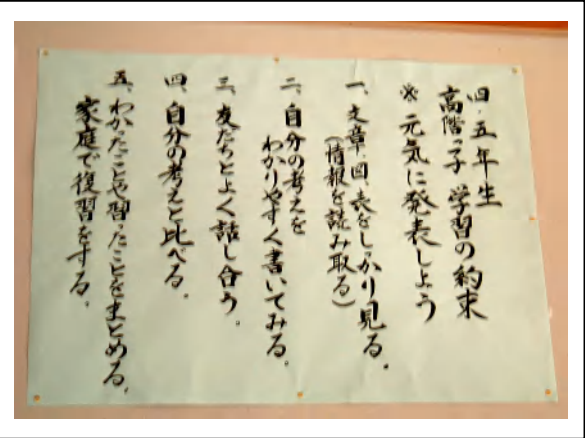 四・五年生
高階っ子 学習の約束
※ 元気に発表しよう
一、文章・図・表をしっかり見る。
(情報を読み取る)
二、自分の考えを
わかりやすく書いてみる。
三、友だちとよく話し合う。
四、自分の考えと比べる。
五、わかったことや習ったことをまとめる。
家庭で復習をする。